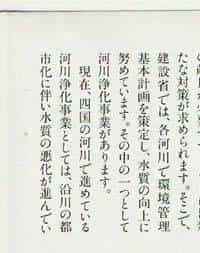 たな対策が求められます。そこで、
建設省では、各河川で環境管理
基本計画を策定し、水質の向上に
努めています。その中の一つとして
河川浄化事業があります。
現在、四国の河川で進めている
河川浄化事業としては、沿川の都
市化に伴い水質の悪化が進んでい